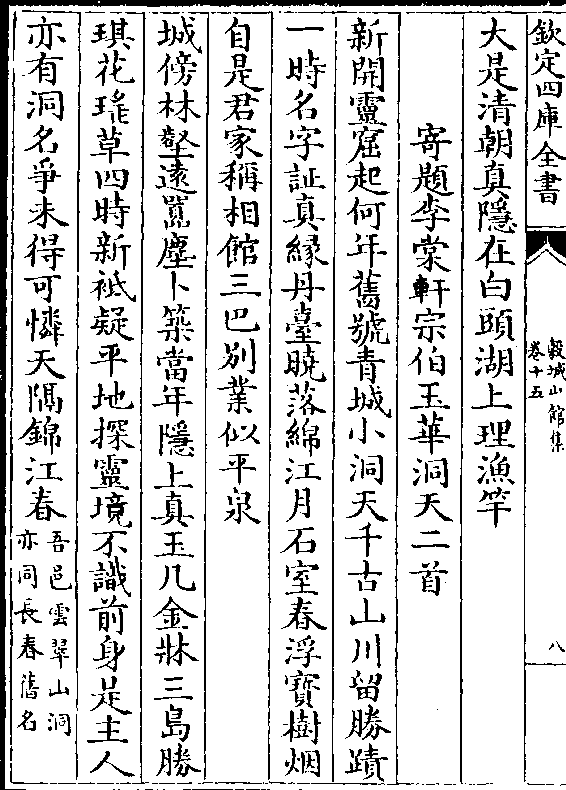 欽定四庫全書
穀城山館集
卷十五
八
大是清朝真隱在白頭湖上理漁竿
寄題李棠軒宗伯玉華洞天二首
新開靈窟起何年舊號青城小洞天千古山川留勝蹟
一時名字証真縁丹臺曉落綿江月石室春浮寳樹烟
自是君家稱相館三巴别業似平泉
城傍林壑遠嚚塵卜築當年隱上真玉几金牀三島勝
琪花瑤草四時新袛疑平地探靈境不識前身是主人
亦有洞名爭未得可憐天隅錦江春吾邑雲翠山洞
亦同長春舊名